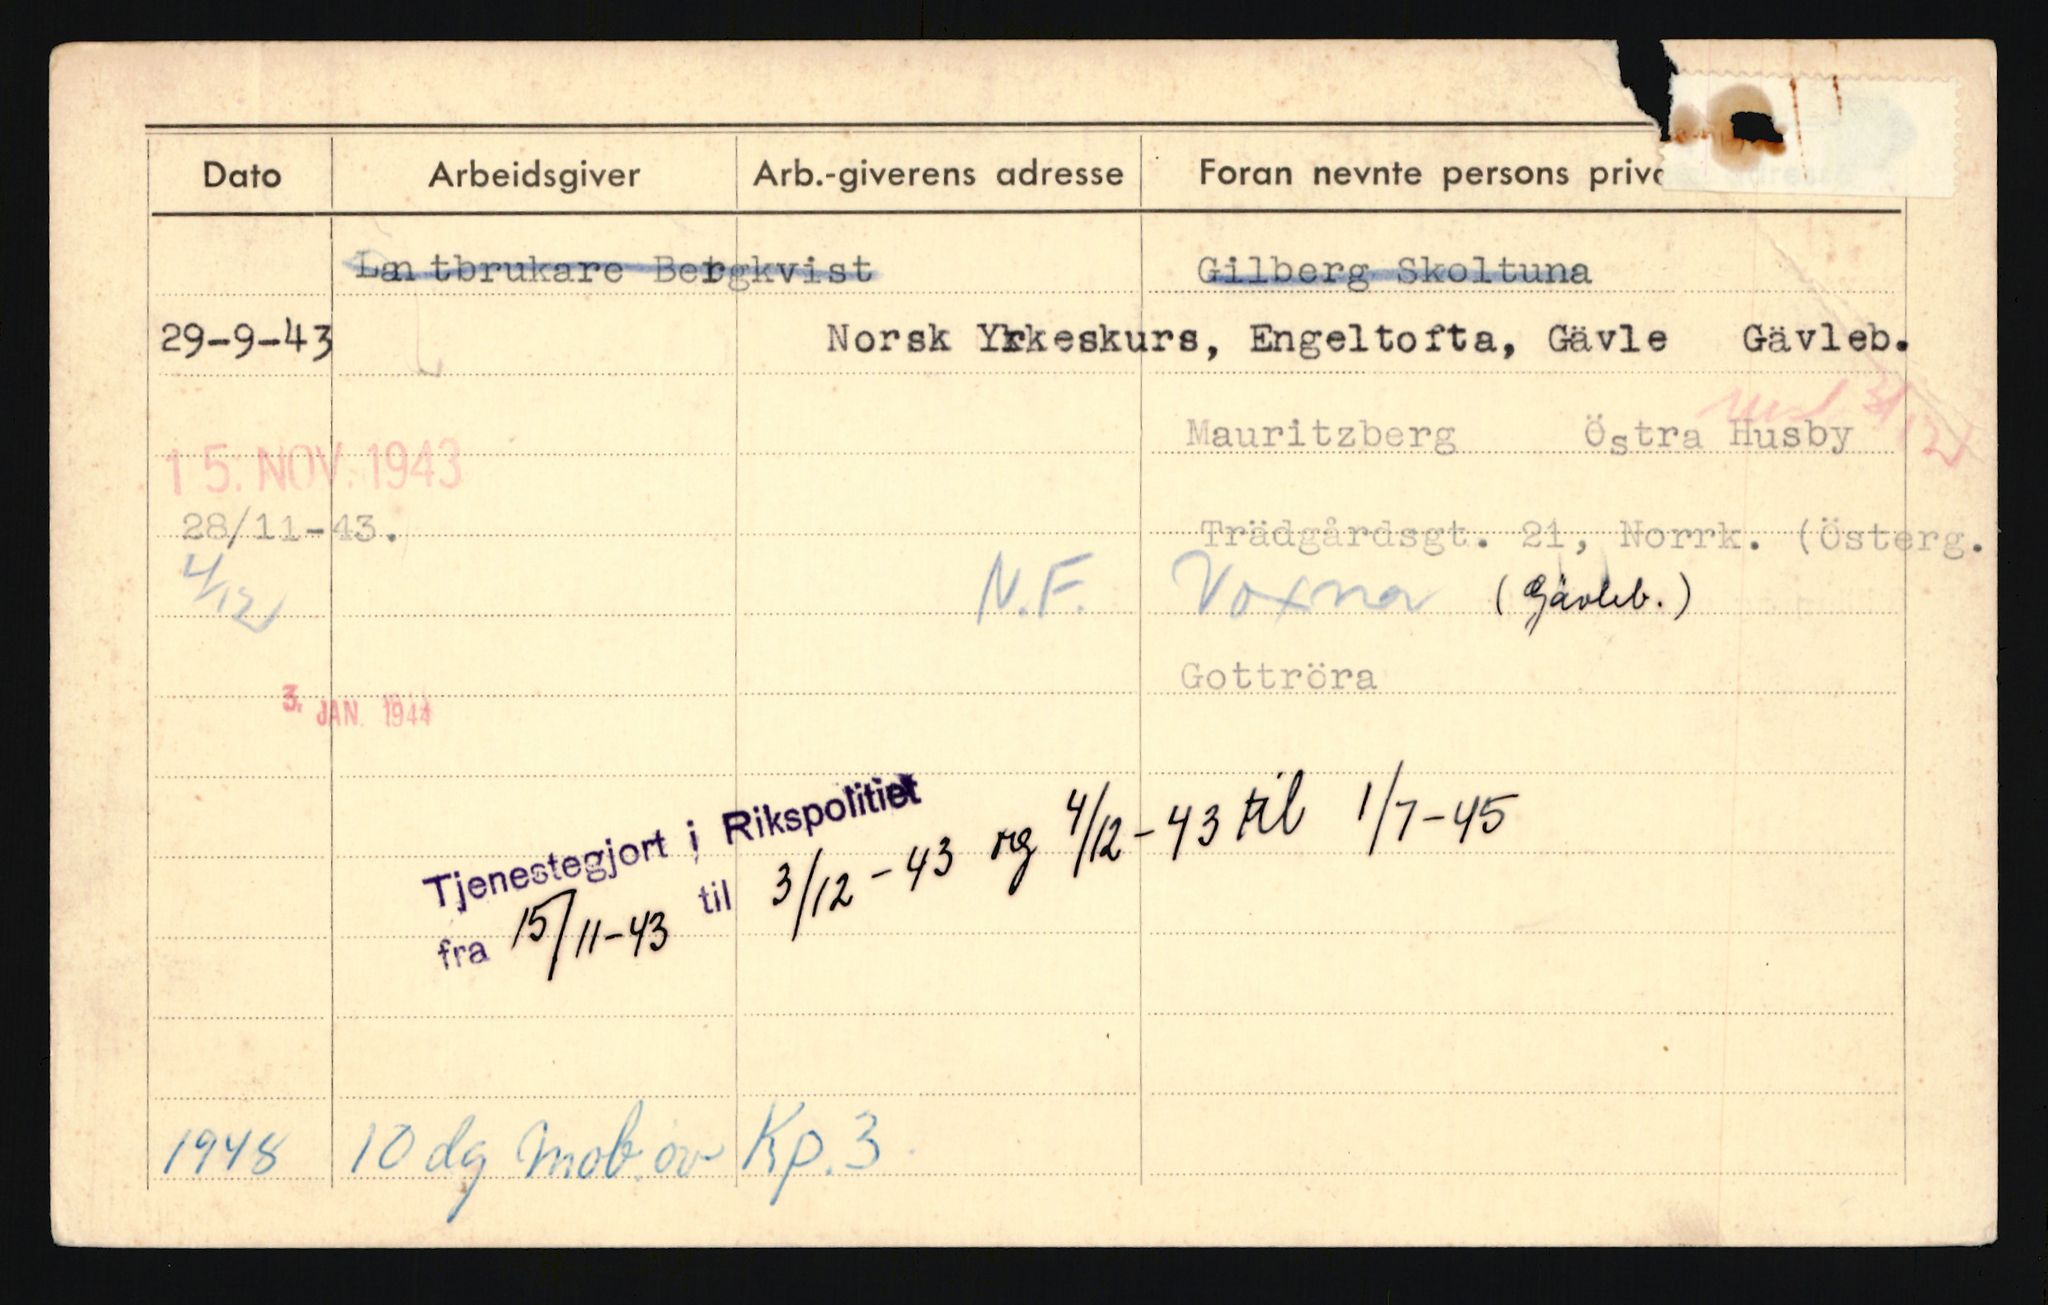 Dato Arbeidsgiver Arb.-giverens adresse Foran nevnte persons priva adresse
Lantbrukare Bergkvist Gilberg Skoltuna
29-9-43 Norsk Yrkeskurs, Engeltofta, Gävle Gävleb.
Mauritzberg Östra Husby 3/12
15. NOV. 1943
28/11-43. Trädgårdsgt. 21, Norrk. (Österg.
4/12 N.F. Voxna (Gävleb.)
Gottröra
3. JAN. 1944
Tjenestegjort i Rikspolitiet
fra 15/11-43 til 3/12-43 og 4/12-43 til 1/7-45
1948 10 dg mob. øv Kp. 3